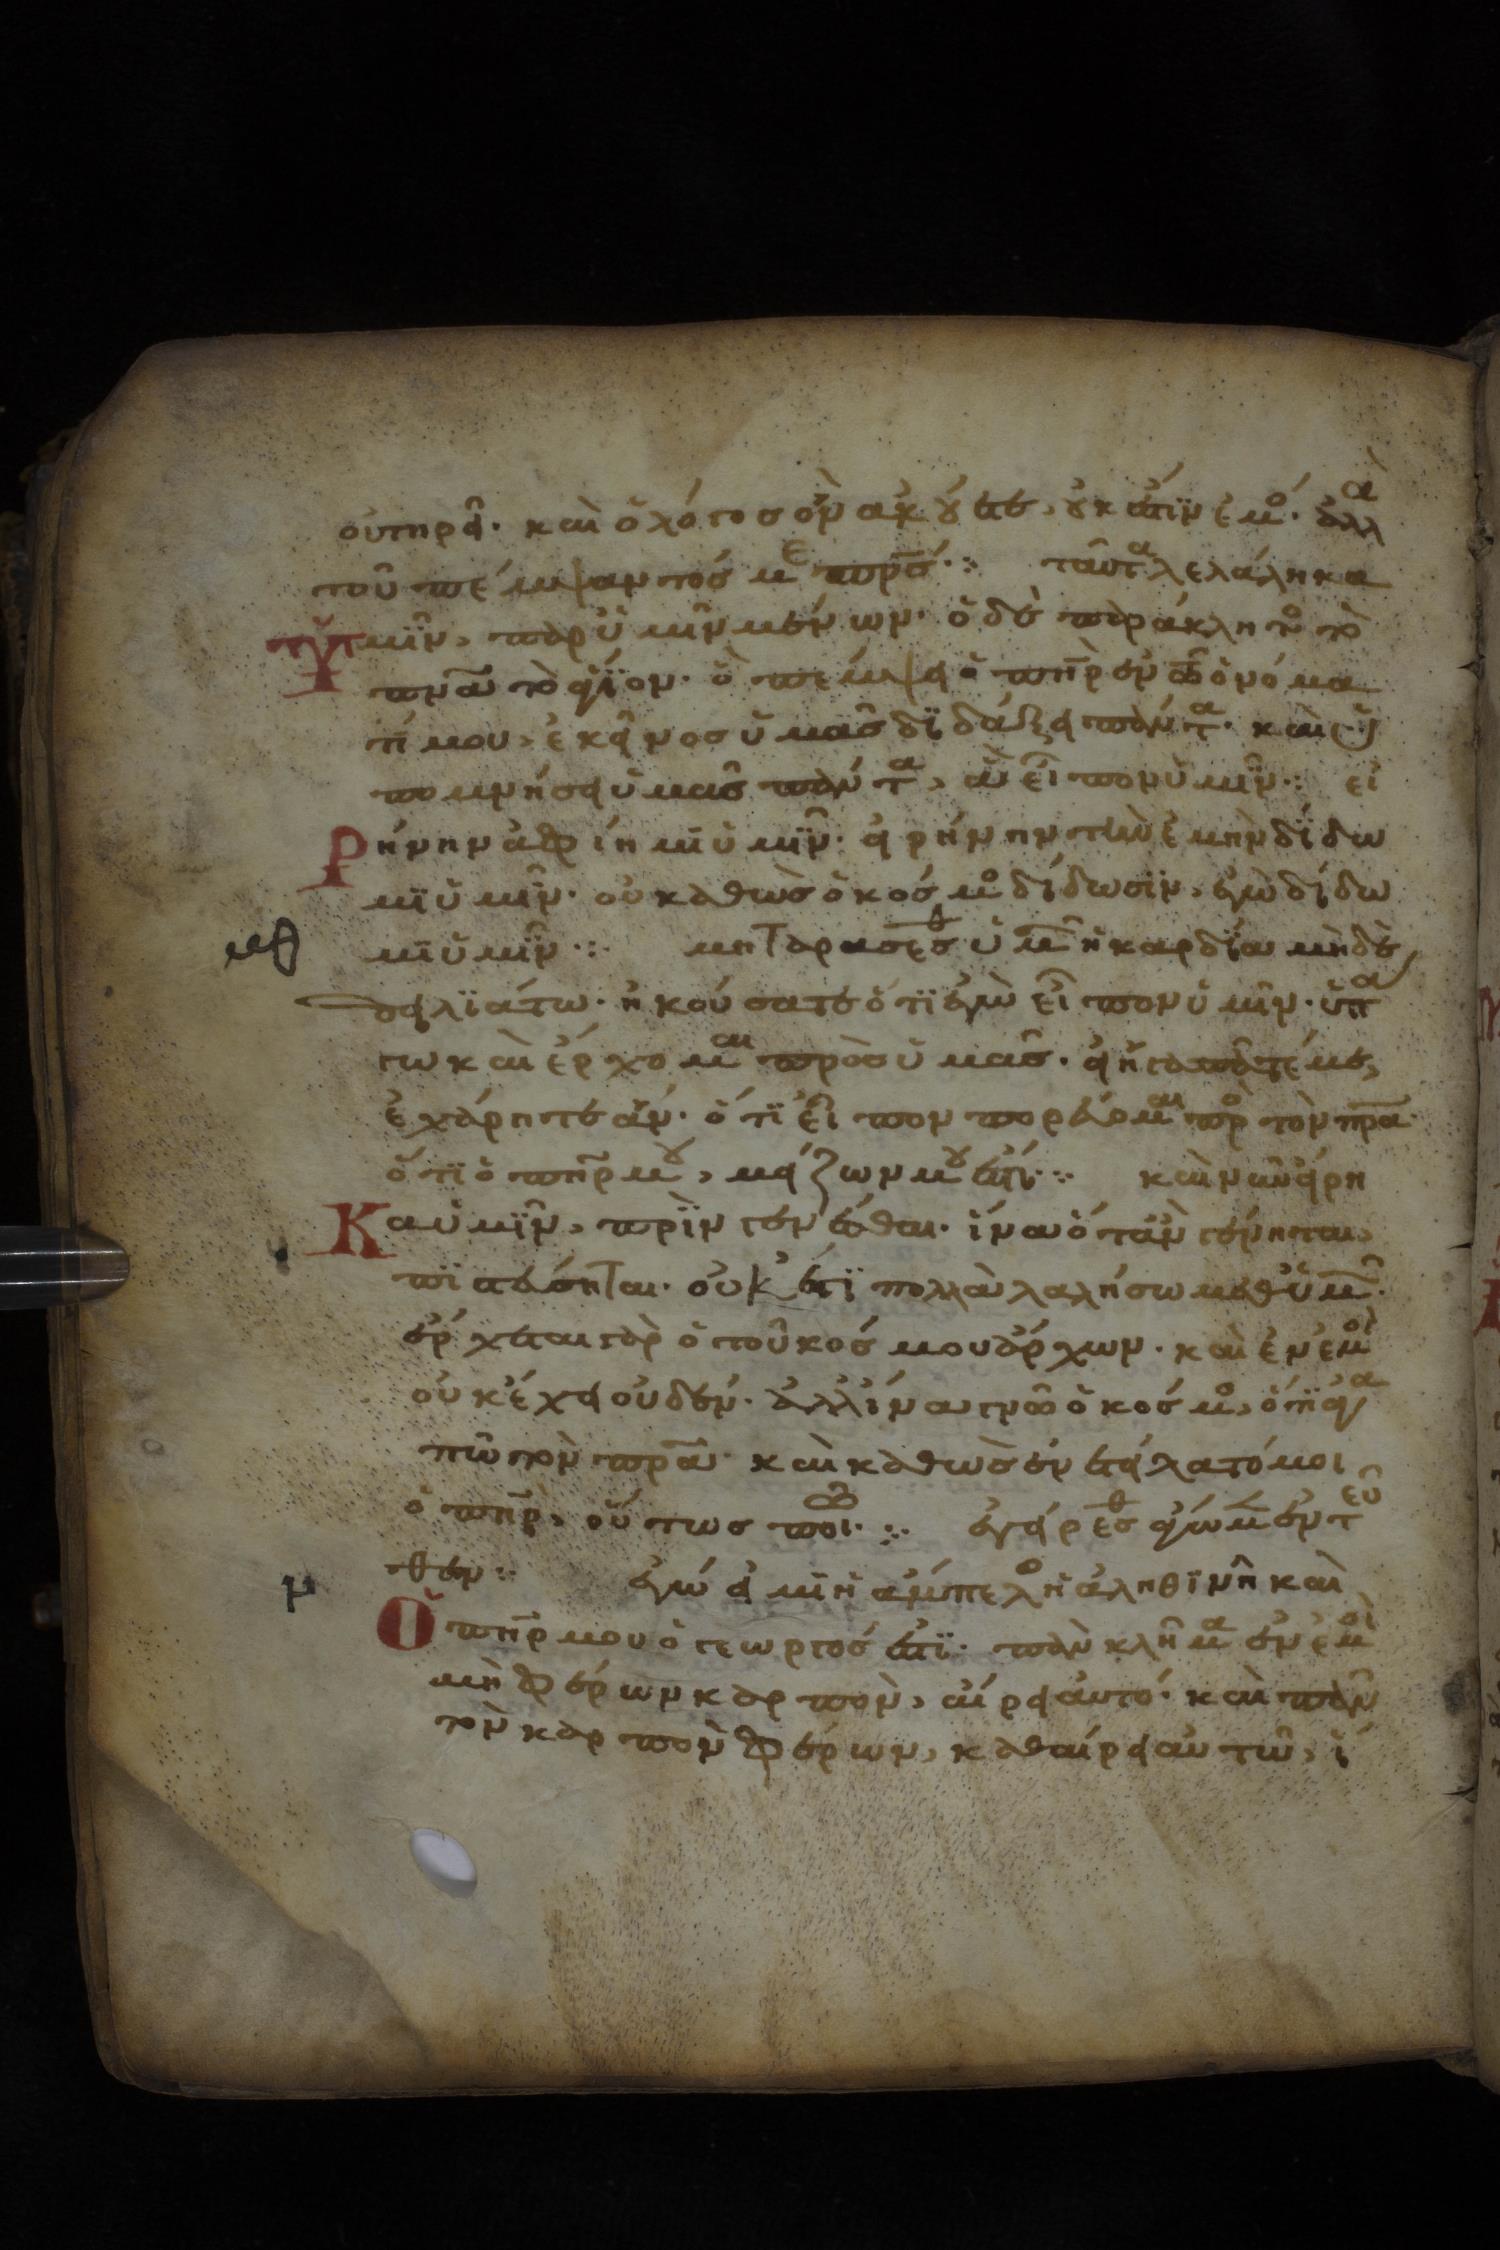 οὐτηρεῖ· καὶ ὁ λόγος ὃν ἀκούετε, οὐκ ἔστιν ἐμός· ἀλλὰ
τοῦ πέμψαντός με πρσ ⁘ ταῦτα λελάληκα
ὑμῖν, παρ' ὑμῖν μένων· ὁ δὲ παράκλητος τὸ
πνα τὸ ἅγιον· ὃ πέμψει ὁ πηρ ἐν τῶ ὀνόμα
τί μου, ἐκεῖνος ὑμᾶς διδάξει πάντα· καὶ ὑ
πομνήσει ὑμᾶς πάντα, ἃ εἶπον ὑμῖν ⁘ εἰ
ρήνην ἀφίημι ὑμῖν· εἰρήνην τὴν ἐμὴν δίδω
μι ὑμῖν· οὐ καθὼς ὁ κόσμος δίδωσιν, ἐγὼ δίδω
μι ὑμῖν ⁘ μὴ ταρασσέσθω ὑμῶν ἡ καρδία μὴ δὲ
μθ
δειλιάτω· ἠκούσατε ὅτι ἐγὼ εἶπον ὑμῖν· ὑπά
γω καὶ ἔρχομαι πρὸς ὑμᾶς· εἰ ἠγαπᾶτέ με,
ἐχάρητε ἄν· ὅτι εἶπον πορεύομαι πρὸς τὸν πρα·
ὅτι ὁ πηρ μου, μείζων μου ἐστί ⁘ καὶ νῦν εἴρη
κα ὑμῖν, πρὶν γενέσθαι· ἵνα ὅταν γένηται,
πιστεύσηται· οὐκ ἔτι πολλὰ λαλήσω μεθ' ὑμῶν·
ἔρχεται γὰρ ὁ τοῦ κόσμου ἄρχων· καὶ ἐν ἐμοὶ
οὐκ ἔχει οὐδέν· ἀλλ' ἵνα γνῶ ὁ κόσμος, ὅτι ἀγα
πῶ τὸν πρα· καὶ καθὼς ἐνετείλατό μοι
ὁ πηρ, οὕτως ποιῶ ⁘ ἐγείρεσθε ἄγωμεν ἐντεῦ
θεν ⁘ ἐγώ εἰμι ἡ ἄμπελος ἡ ἀληθινὴ καὶ
ν
ὁ πηρ μου ὁ γεωργός ἐστι· πᾶν κλῆμα ἐν ἐμοὶ
μὴ φέρων καρπὸν, αἴρει αὐτό· καὶ πᾶν
τὸν καρπὸν φέρων, καθαίρει αὐτῶ, ἵ